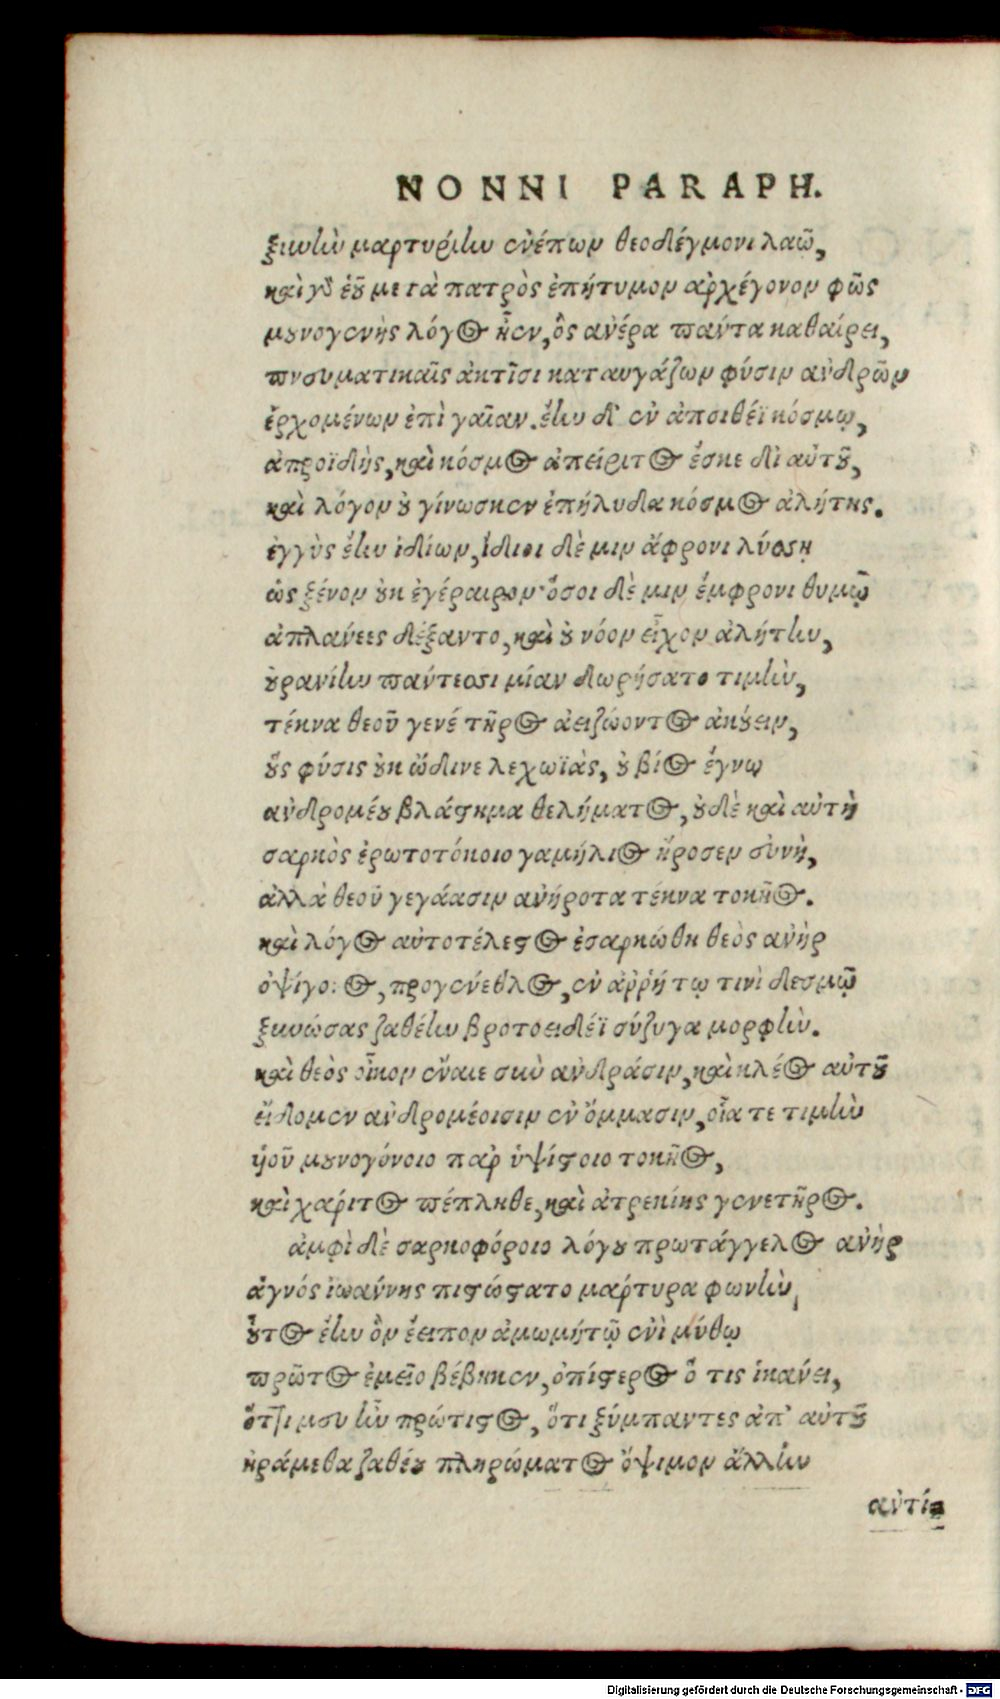 NONNI PARAPH.
ξιωὴν μαρτυρίην ἐνέπων θεοδέγμονι λαῷ,
καὶ γὸ ἑοῦ μετὰ πατρὸς ἐπήτυμον ἀρχέγονον φῶς
μουνογενὴς λόγος ἦεν, ὃς ἀνέρα πάντα καθαίρει,
πνευματικαῖς ἀκτῖσι καταυγάζων φύσιν ἀνδρῶν
ἐρχομένων ἐπὶ γαῖαν. ἔην δ' ἐν ἀπειθέϊ κόσμῳ,
ἀπροϊδὴς, καὶ κόσμος ἀπείριτος ἔσκε δι αὐτοῦ,
καὶ λόγον οὐ γίνωσκεν ἐπήλυδα κόσμος ἀλήτης.
ἐγγὺς ἔην ἰδίων, ἴδιοι δὲ μιν ἄφρονι λύσσῃ
ὡς ξένον οὐκ ἐγέραιρον· ὅσοι δὲ μιν ἔμφρονι θυμῷ
ἀπλανέες δέξαντο, καὶ οὐ νόον εἶχον ἀλήτην,
οὐρανίην πάντεσσι μίαν δωρήσατο τιμὴν,
τέκνα θεοῦ γενέ τῆρος ἀειζώοντος ἀκούειν,
οὓς φύσις οὐκ ὤδινε λεχωϊὰς, οὐ βίος ἔγνω
ἀνδρομέου βλάστημα θελήματος, οὐδὲ καὶ αὐτὴ
σαρκὸς ἐρωτοτόκοιο γαμήλιος ἤροσεν εὐνὴ,
ἀλλὰ θεοῦ γεγάασιν ἀνήροτα τέκνα τοκῆος.
καὶ λόγος αὐτοτέλεστος ἐσαρκώθη θεὸς ἀνὴρ
ὀψίγονος, προγένεθλος, ἐν ἀῤῥήτῳ τινὶ δεσμῷ
ξυνώσας ζαθέην βροτοειδέϊ σύζυγα μορφὴν.
καὶ θεὸς οἶκον ἔναιε σὺν ἀνδράσιν, καὶ κλέος αὐτοῦ
εἴδομεν ἀνδρομέοισιν ἐν ὄμμασιν, οἷα τε τιμὴν
υἱοῦ μουνογόνοιο παρ ὑψίστοιο τοκῆος,
καὶ χάριτος πέπληθε, καὶ ἀτρεκίης γενετῆρος.
ἀμφὶ δὲ σαρκοφόροιο λόγου πρωτάγγελος ἀνὴρ
ἁγνός ἰωάννης πιστώσατο μάρτυρα φωνὴν,
οὗτος ἔην ὃν ἔειπον ἀμωμήτῳ ἐνὶ μύθῳ
πρῶτος ἐμεῖο βέβηκεν, ὀπίστερος ὅ τις ἱκάνει,
ὅττι μευ ἦν πρώτιστος, ὅτι ξύμπαντες ἀπ' αὐτοῦ
ἠράμεθα ζαθέου πληρώματος ὄψιμον ἄλλην
ἀντί⸗
Digitalisierung gefördert durch die Deutsche Forschungsgemeinschaft - DFG